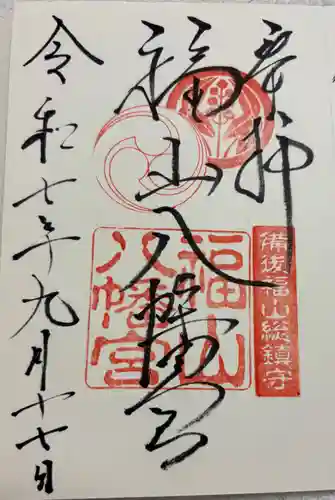 奉拝
備後福山総鎮守
福山八幡宮
福山八幡宮
令和七年九月十七日